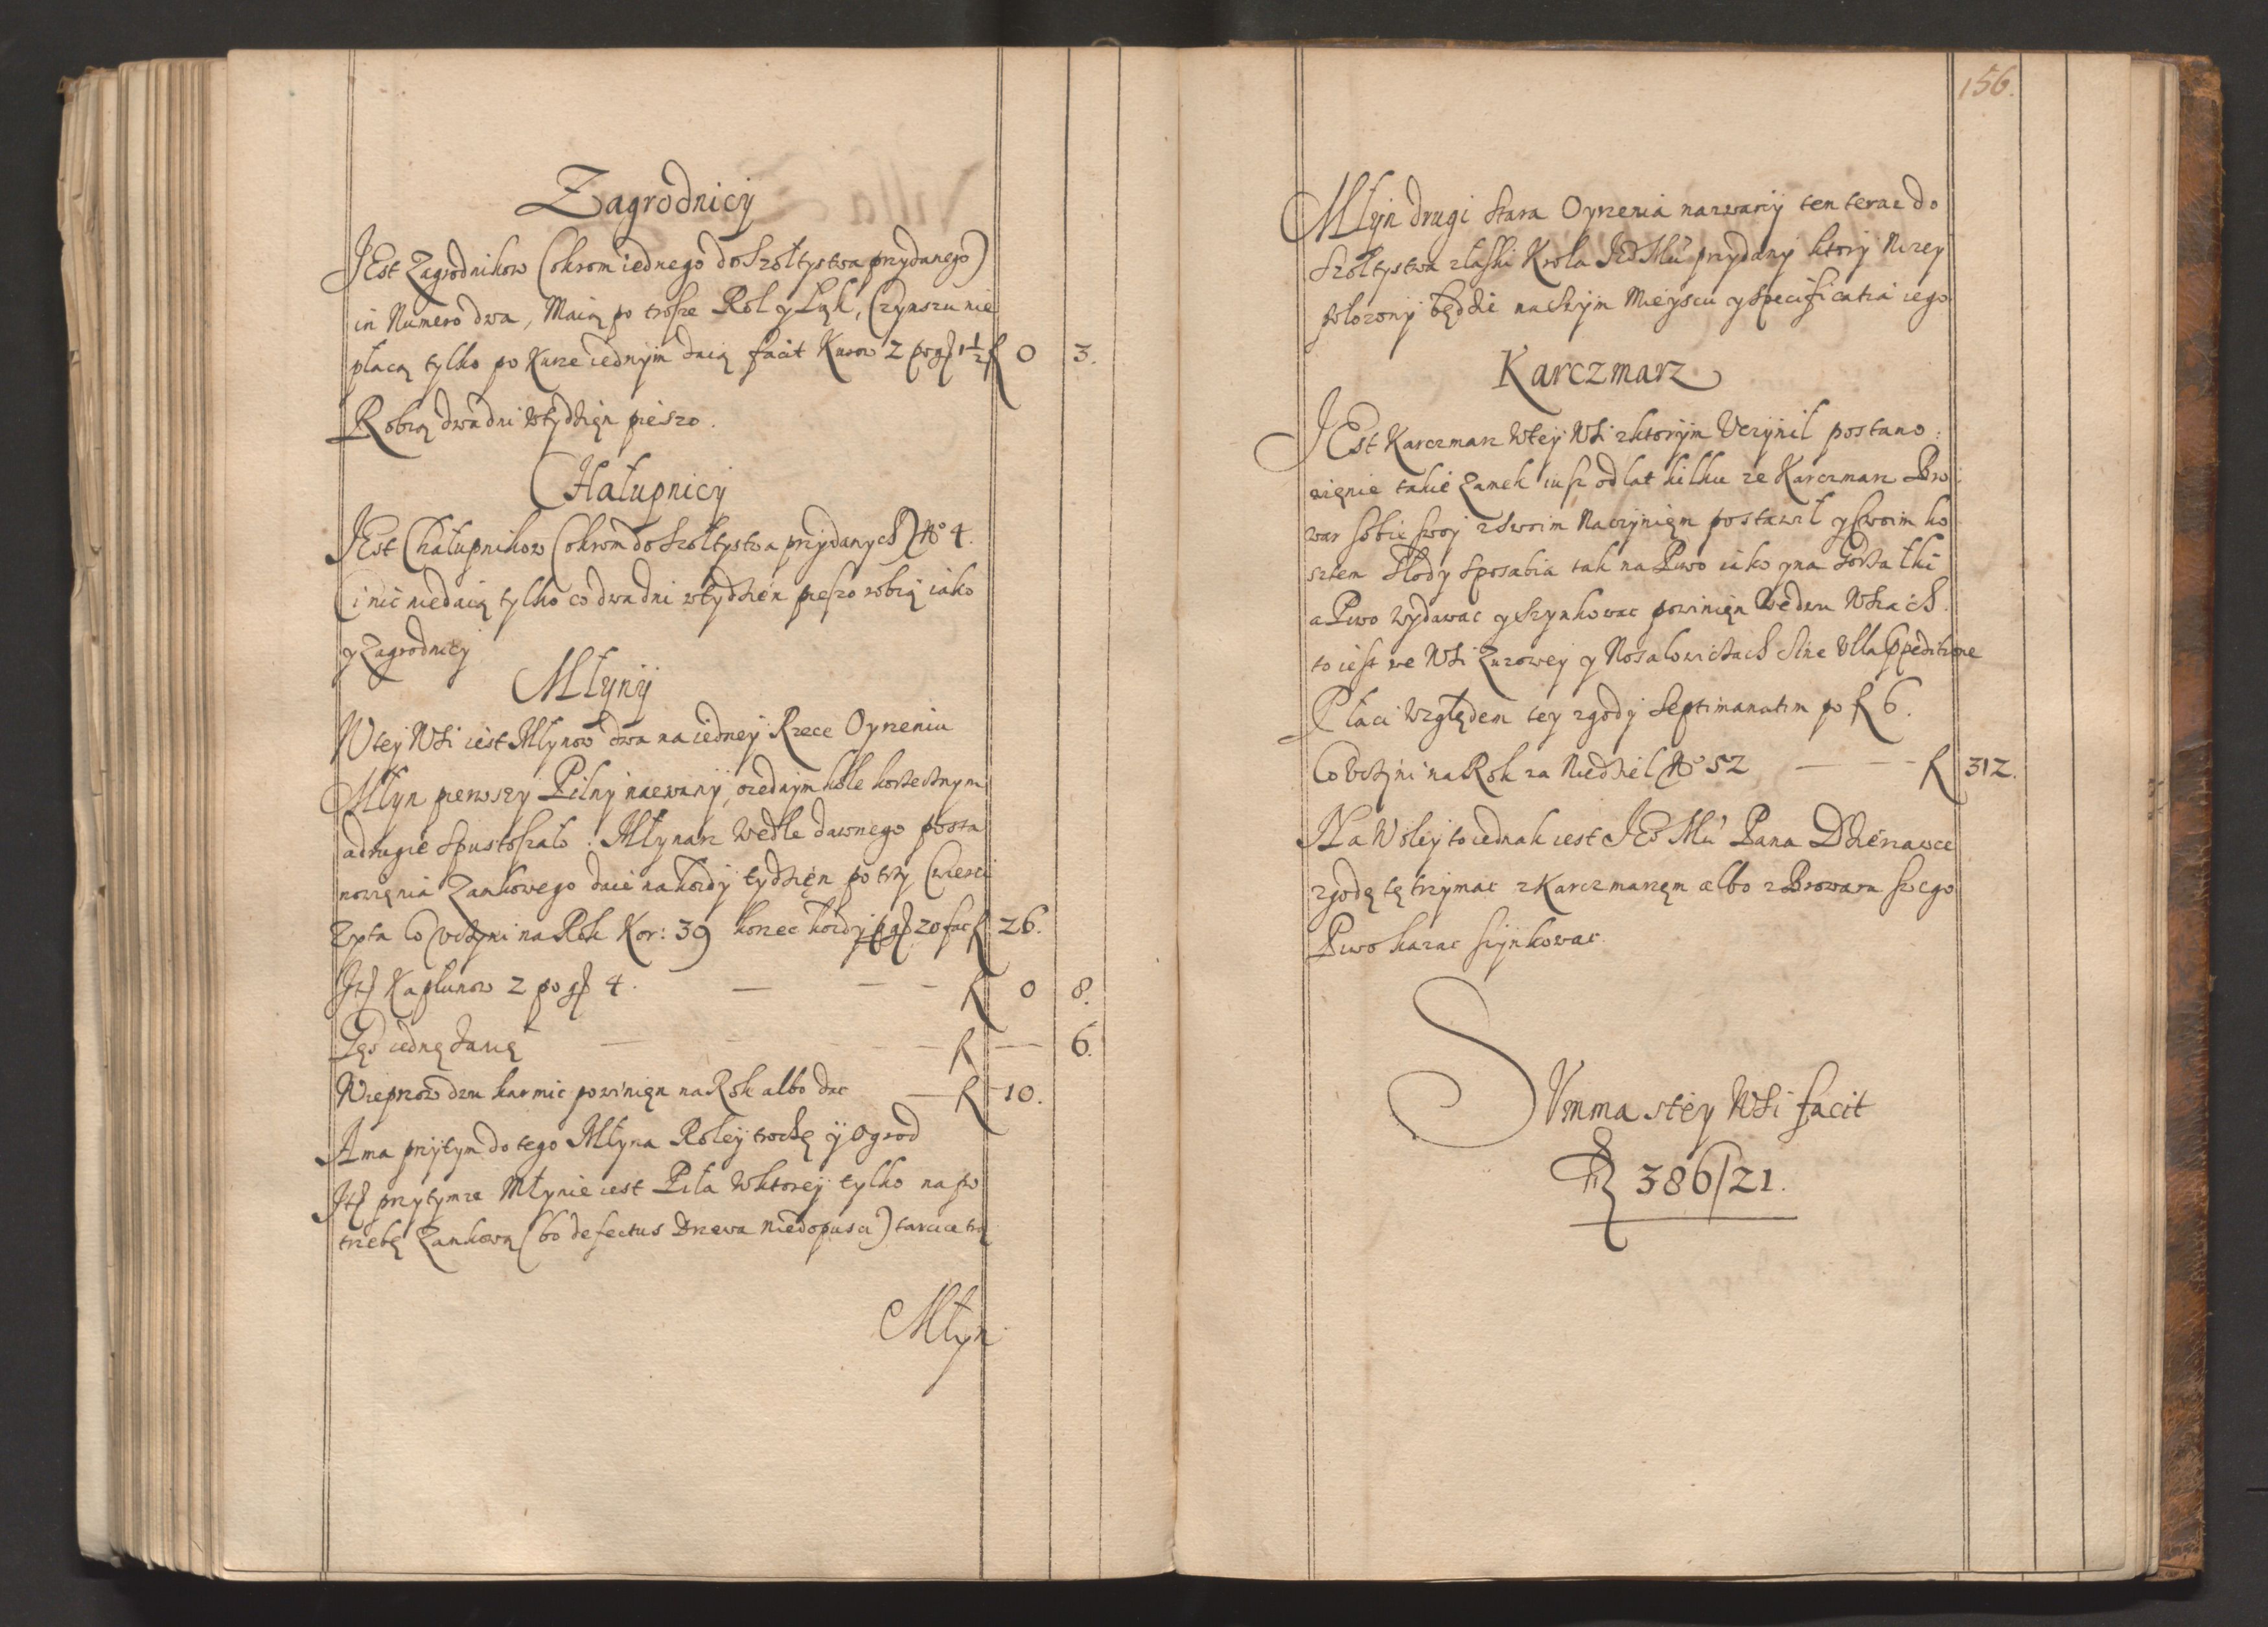 Zagrodnicy
JEst Zagrodnikow (okrom iednego do Szoltystwa przydanego)
in Numero dwa, Maią po trosze Rol y Łąk, Czynszu nie
płacą tylko po Kurze iednym daią facit Kurow 2 po gſ 1½ f 0 3.
Robią dwa dni w tydzięn pieszo.
Chałupnicy
JEst Chałupnikow (okrom do Szoltystwa przydanych) No 4.
Ci nic niedaią tylko co dwa dni w tydzien pieszo robią iako
y Zagrodnicy
Młyny
W tey Wsi iest Młynow dwa na iedney Rzece Oyrzeniu
Młyn pierwszy Pilny nazwany, o iednym kole korzecznym
a drugie spustoszało. Młynarz wedle dawnego posta
nowięnia Zamkowego daie na kozdy tydzięn po trzy Cwierci
Zyta co Vczyni na Rok Kor: 39 korzec kozdy p gſ 20 fac f 26.
Itſ Kapłunow 2 po gſ 4. — — — f 0 8.
Gęs iednę daną — — — f — 6.
Wieprzow dwu karmic powinięn na Rok albo dac — f 10.
A ma przytym do tego Młyna Roley trochę y Ogrod
Itſ przytymze Młynie iest Piła w ktorey tylko na po
trzebę Zamkową (bo defectus Drzewa niedopusci) tarcice trą
Młyn
156.
Młyn drugi Stara Oyrzenia nazwany ten teraz do
Szoltystwa z łaski Krola JEo Mci przydany ktory Nizey
położony będzie na swym Mieyscu y specificatia iego
Karczmarz
JEst Karczmarz w tey Wsi z ktorym Vczynil postano:
więnie takie Zamek iusz od lat kilku ze Karczmarz Bro:
war sobie swoy z swoim Naczynięm postawił y swoim ko
sztem Słody sposabia tak na Piwo iako y na Gorzałki
a Piwo wydawac y szynkowac powinięn we dwu Wsiach
to iest we Wsi Zurowey y Nosalowicach sine Vlla Expeditione
Płaci Względem tey zgody Septimanatim po f 6.
Co Vczyni na Rok za Niedziel No 52 — — — f 312.
Na Woley to iednak iest JEo Mci Pana Dzierzawce
zgodę tę trzymac z Karczmarzęm albo z Browaru swego
Piwo kazac szynkowac.
SVmma stey Wsi facit
f 386/21.